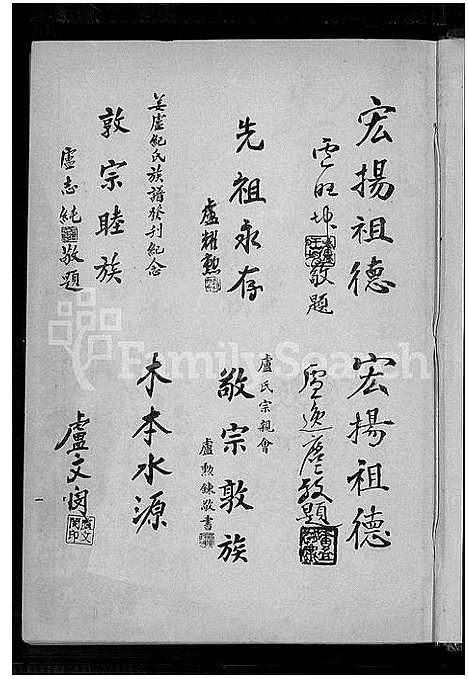 宏揚祖德
盧旺坤敬題
先祖永存
盧耀勲
姜盧紀氏族譜發刊紀念
敦宗睦族
盧志純敬題
宏揚祖德
盧逸
敬題
盧氏宗親會
敬宗敦族
盧勲鍊敬書
木本水源
盧文閔
盧文閔印
FamilySearch